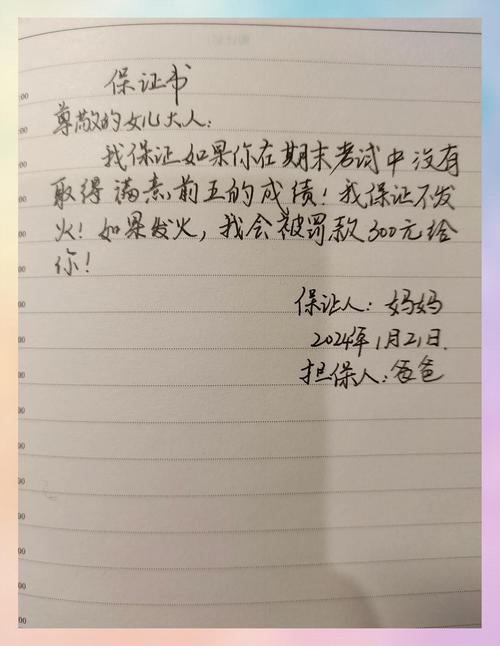 保证书
尊敬的女儿大人：
我保证如果你在期末考试中没有
取得满意前五的成绩！我保证不发
火！如果发火，我会被罚款300元给
你！
保证人：妈妈
2024年1月21日.
担保人：爸爸